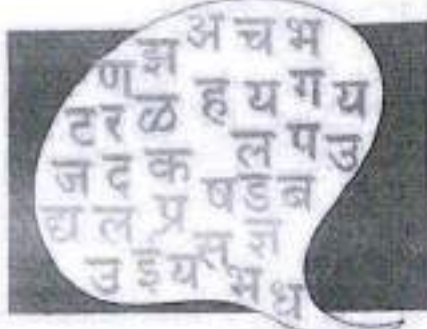 अ च भ
ण झ ह य ग य
ट र ळ ल प उ
ज द क ष ड ब
द्य ल प्र स् ज्ञ
उ ई य भ ध